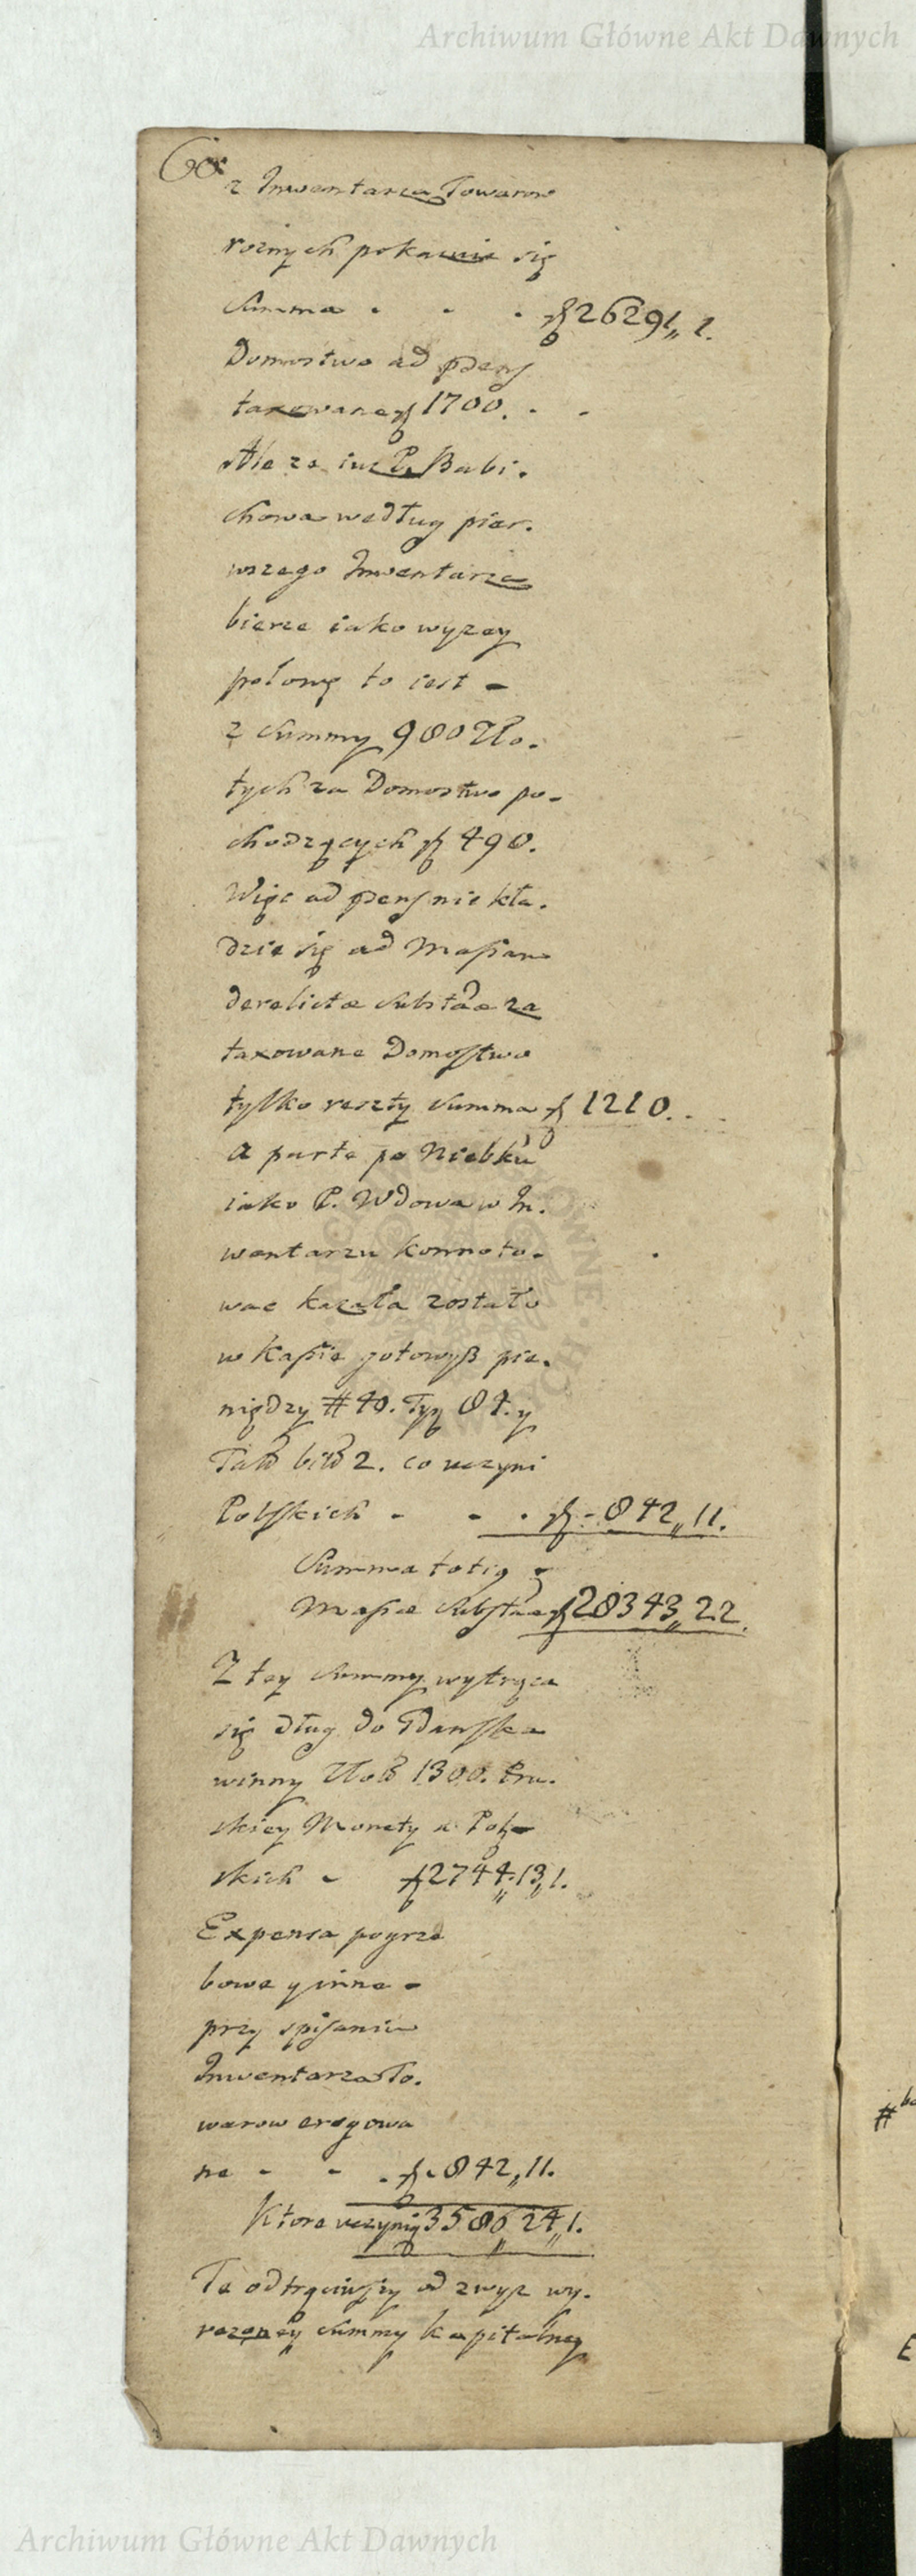 Archiwum Główne Akt Dawnych
60
z Inwentarza Towarow
roznych pokazuie się
Summa . . . f 26291,, 1.
Domostwo ad
taxowane f 1700. . -
Ale ze iuz P. Babi.
chowa według pier.
wszego Inwentarza
bierze iako wyzey
połowę to iest -
z Summy 980 Zło.
tych za Domostwo po-
chodzących f 490.
Więc ad nie kła.
dzie się ad Massam
derelictæ Substãæ za
taxowane Domostwo
tylko reszty Summa f 1210. . .
A parte po Niebku
iako P. Wdowa w In.
wentarzu konnoto-
wac kazała zostało
w Kassie gotowyß pie.
niędzy # 40. Tyn 84. y
bitß 2. co uczyni
Polskich - - . f - 842,, 11.
Summa totiq
Massæ Substãæ f 28343,, 22.
Z tey Summy wytrąca
się dług do Gdanska
winny Złotß 1300. Pru.
skiey Monety a Pol-
skich - f 2744,, 13,, 1.
Expensa pogrze
bowe y inne -
przy spisaniu
Inwentarza To.
warow erogowa
ne - - . f - 842,, 11.
Ktore uczynią f 3586,, 24,, 1.
Te odtrąciwszy od zwyz wy.
razoney Summy kapitalney
Archiwum Główne Akt Dawnych